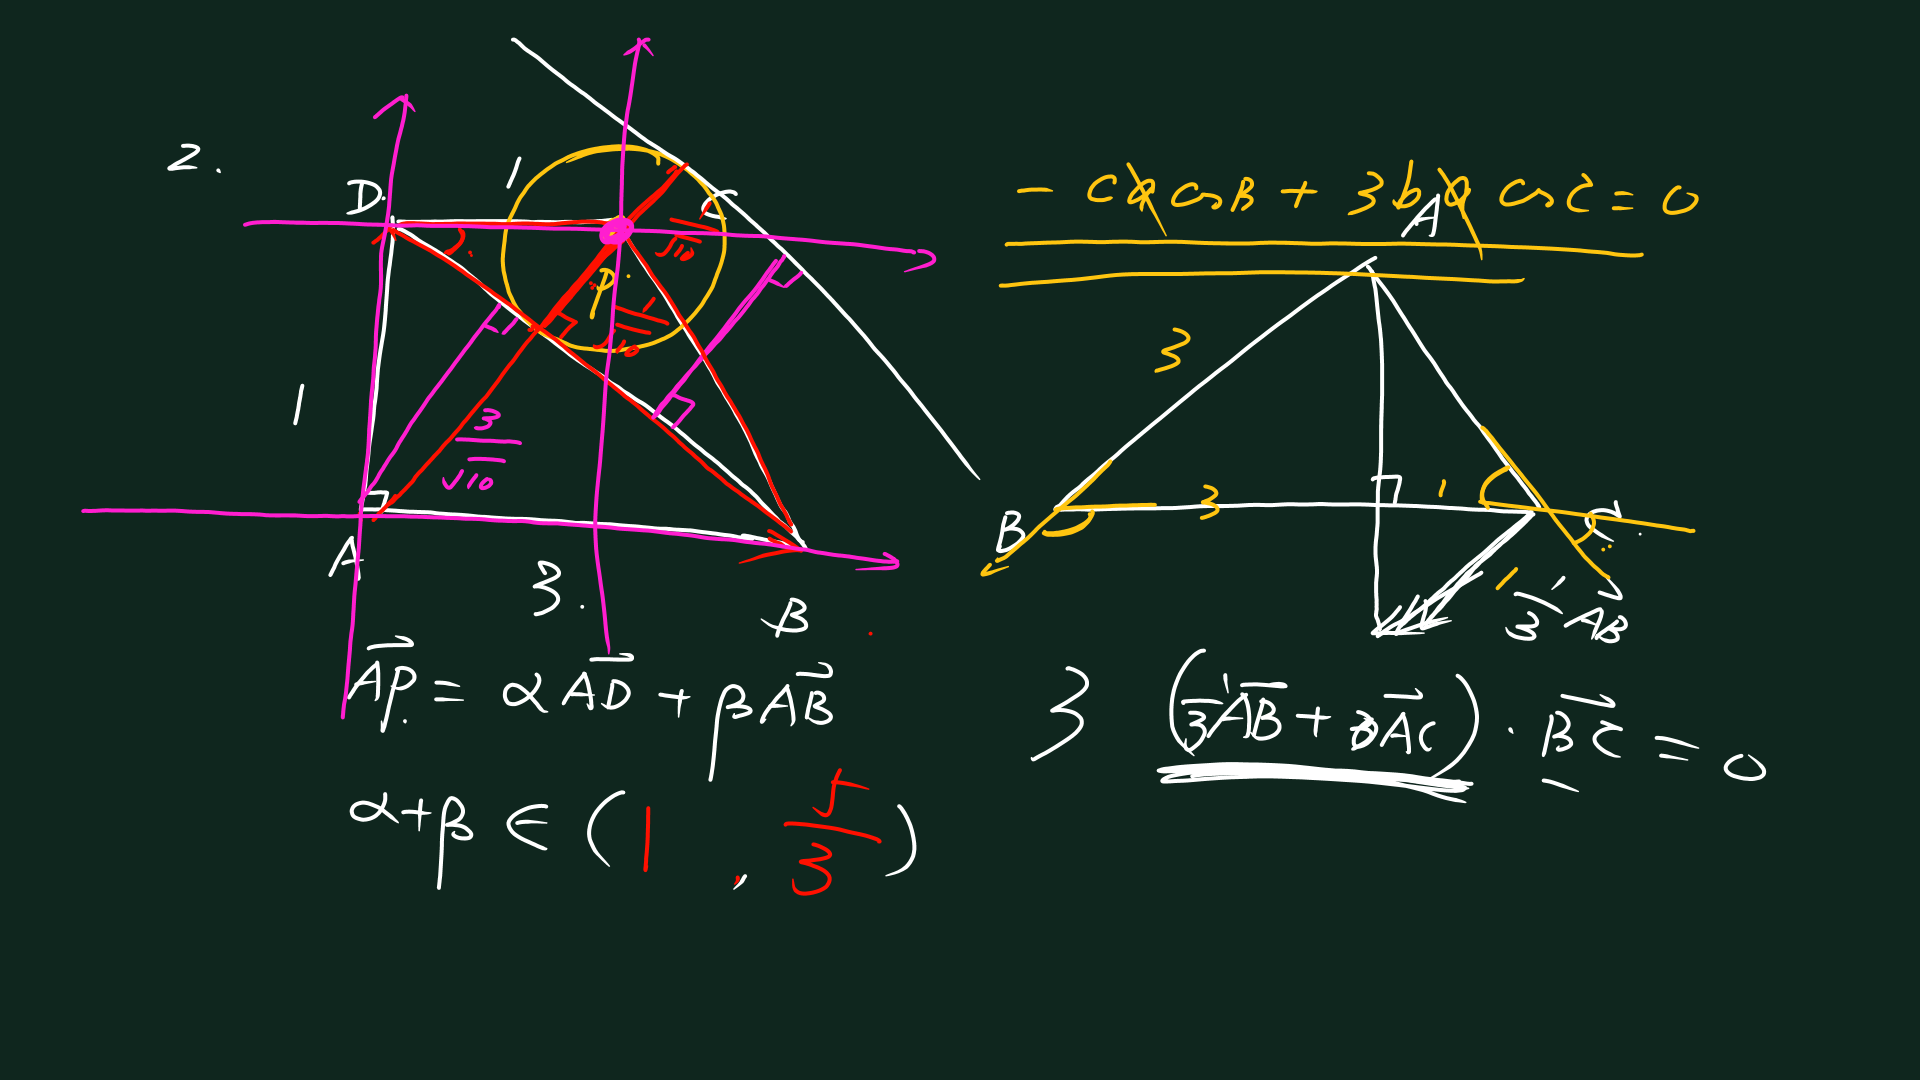 2.
D
1
C
P
1/√10
1/√10
1
3/√10
A
3.
B
AP = αAD + βAB
α+β ∈ (1, 5/3)
- ca cosB + 3ba cosC = 0
A
3
B
3
1
C
1
1/3 AB
3 (1/3 AB + 3AC) · BC = 0